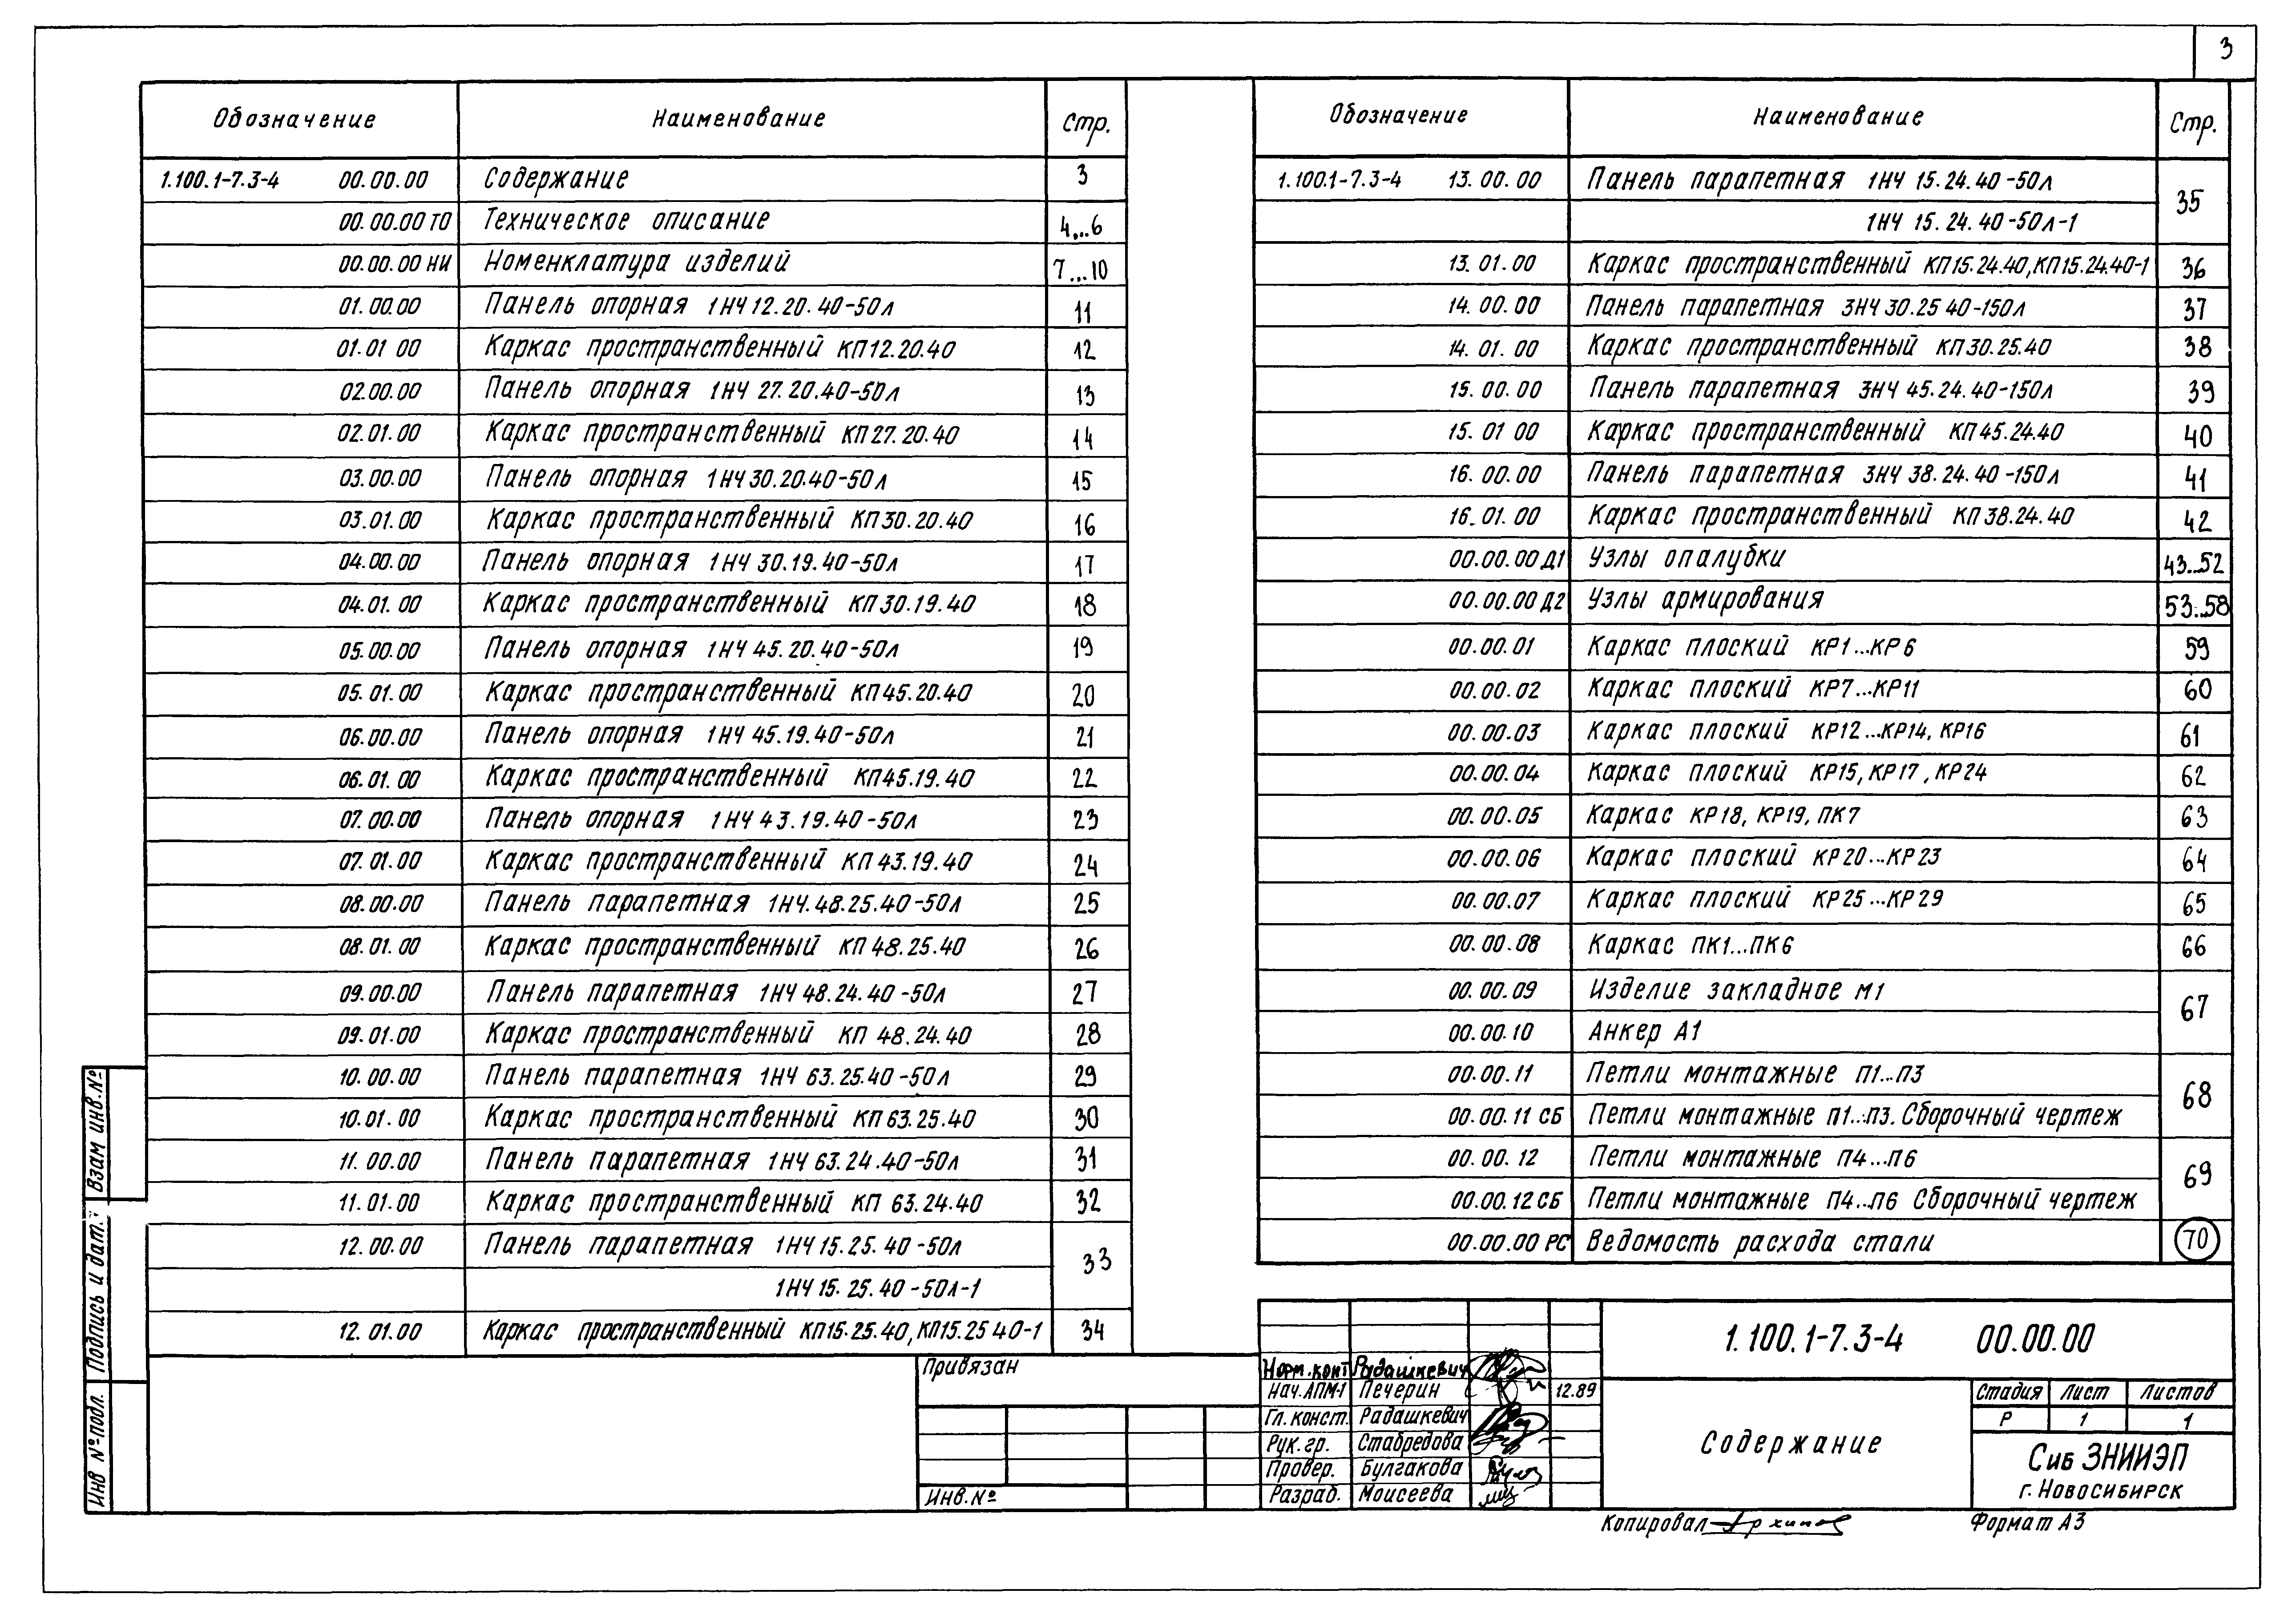 3
Обозначение Наименование Стр.
1.100.1-7.3-4 00.00.00 Содержание 3
00.00.00 ТО Техническое описание 4...6
00.00.00 НИ Номенклатура изделий 7...10
01.00.00 Панель опорная 1НЧ 12.20.40-50л 11
01.01 00 Каркас пространственный КП12.20.40 12
02.00.00 Панель опорная 1НЧ 27.20.40-50л 13
02.01.00 Каркас пространственный КП27.20.40 14
03.00.00 Панель опорная 1НЧ 30.20.40-50л 15
03.01.00 Каркас пространственный КП30.20.40 16
04.00.00 Панель опорная 1НЧ 30.19.40-50л 17
04.01.00 Каркас пространственный КП30.19.40 18
05.00.00 Панель опорная 1НЧ 45.20.40-50л 19
05.01.00 Каркас пространственный КП45.20.40 20
06.00.00 Панель опорная 1НЧ 45.19.40-50л 21
06.01.00 Каркас пространственный КП45.19.40 22
07.00.00 Панель опорная 1НЧ 43.19.40-50л 23
07.01.00 Каркас пространственный КП 43.19.40 24
08.00.00 Панель парапетная 1НЧ.48.25.40-50л 25
08.01.00 Каркас пространственный КП 48.25.40 26
09.00.00 Панель парапетная 1НЧ 48.24.40-50л 27
09.01.00 Каркас пространственный КП 48.24.40 28
10.00.00 Панель парапетная 1НЧ 63.25.40-50л 29
10.01.00 Каркас пространственный КП 63.25.40 30
11.00.00 Панель парапетная 1НЧ 63.24.40-50л 31
11.01.00 Каркас пространственный КП 63.24.40 32
12.00.00 Панель парапетная 1НЧ 15.25.40-50л 33
1НЧ 15.25.40-50л-1
12.01.00 Каркас пространственный КП15.25.40, КП15.25 40-1 34
Обозначение Наименование Стр.
1.100.1-7.3-4 13.00.00 Панель парапетная 1НЧ 15.24.40-50л 35
1НЧ 15.24.40-50л-1
13.01.00 Каркас пространственный КП15.24.40, КП15.24.40-1 36
14.00.00 Панель парапетная 3НЧ 30.25 40-150л 37
14.01.00 Каркас пространственный КП30.25.40 38
15.00.00 Панель парапетная 3НЧ 45.24.40-150л 39
15.01 00 Каркас пространственный КП45.24.40 40
16.00.00 Панель парапетная 3НЧ 38.24.40-150л 41
16.01.00 Каркас пространственный КП38.24.40 42
00.00.00 Д1 Узлы опалубки 43...52
00.00.00 Д2 Узлы армирования 53...58
00.00.01 Каркас плоский КР1...КР6 59
00.00.02 Каркас плоский КР7...КР11 60
00.00.03 Каркас плоский КР12...КР14, КР16 61
00.00.04 Каркас плоский КР15, КР17, КР24 62
00.00.05 Каркас КР18, КР19, ПК7 63
00.00.06 Каркас плоский КР20...КР23 64
00.00.07 Каркас плоский КР25...КР29 65
00.00.08 Каркас ПК1...ПК6 66
00.00.09 Изделие закладное М1 67
00.00.10 Анкер А1
00.00.11 Петли монтажные П1...П3 68
00.00.11 СБ Петли монтажные П1...П3. Сборочный чертеж
00.00.12 Петли монтажные П4...П6 69
00.00.12 СБ Петли монтажные П4...П6 Сборочный чертеж
00.00.00 РС Ведомость расхода стали 70
Взам инв.№
Подпись и дат.
Инв №подл.
Привязан
Инв.№
Норм.конт Радашкевич
Нач.АПМ-1 Печерин 12.89
Гл.конст. Радашкевич
Рук.гр. Стабредова
Провер. Булгакова
Разраб. Моисеева
1.100.1-7.3-4 00.00.00
Содержание
Стадия Лист Листов
Р 1 1
Сиб ЗНИИЭП
г.Новосибирск
Копировал Архипов
Формат А3